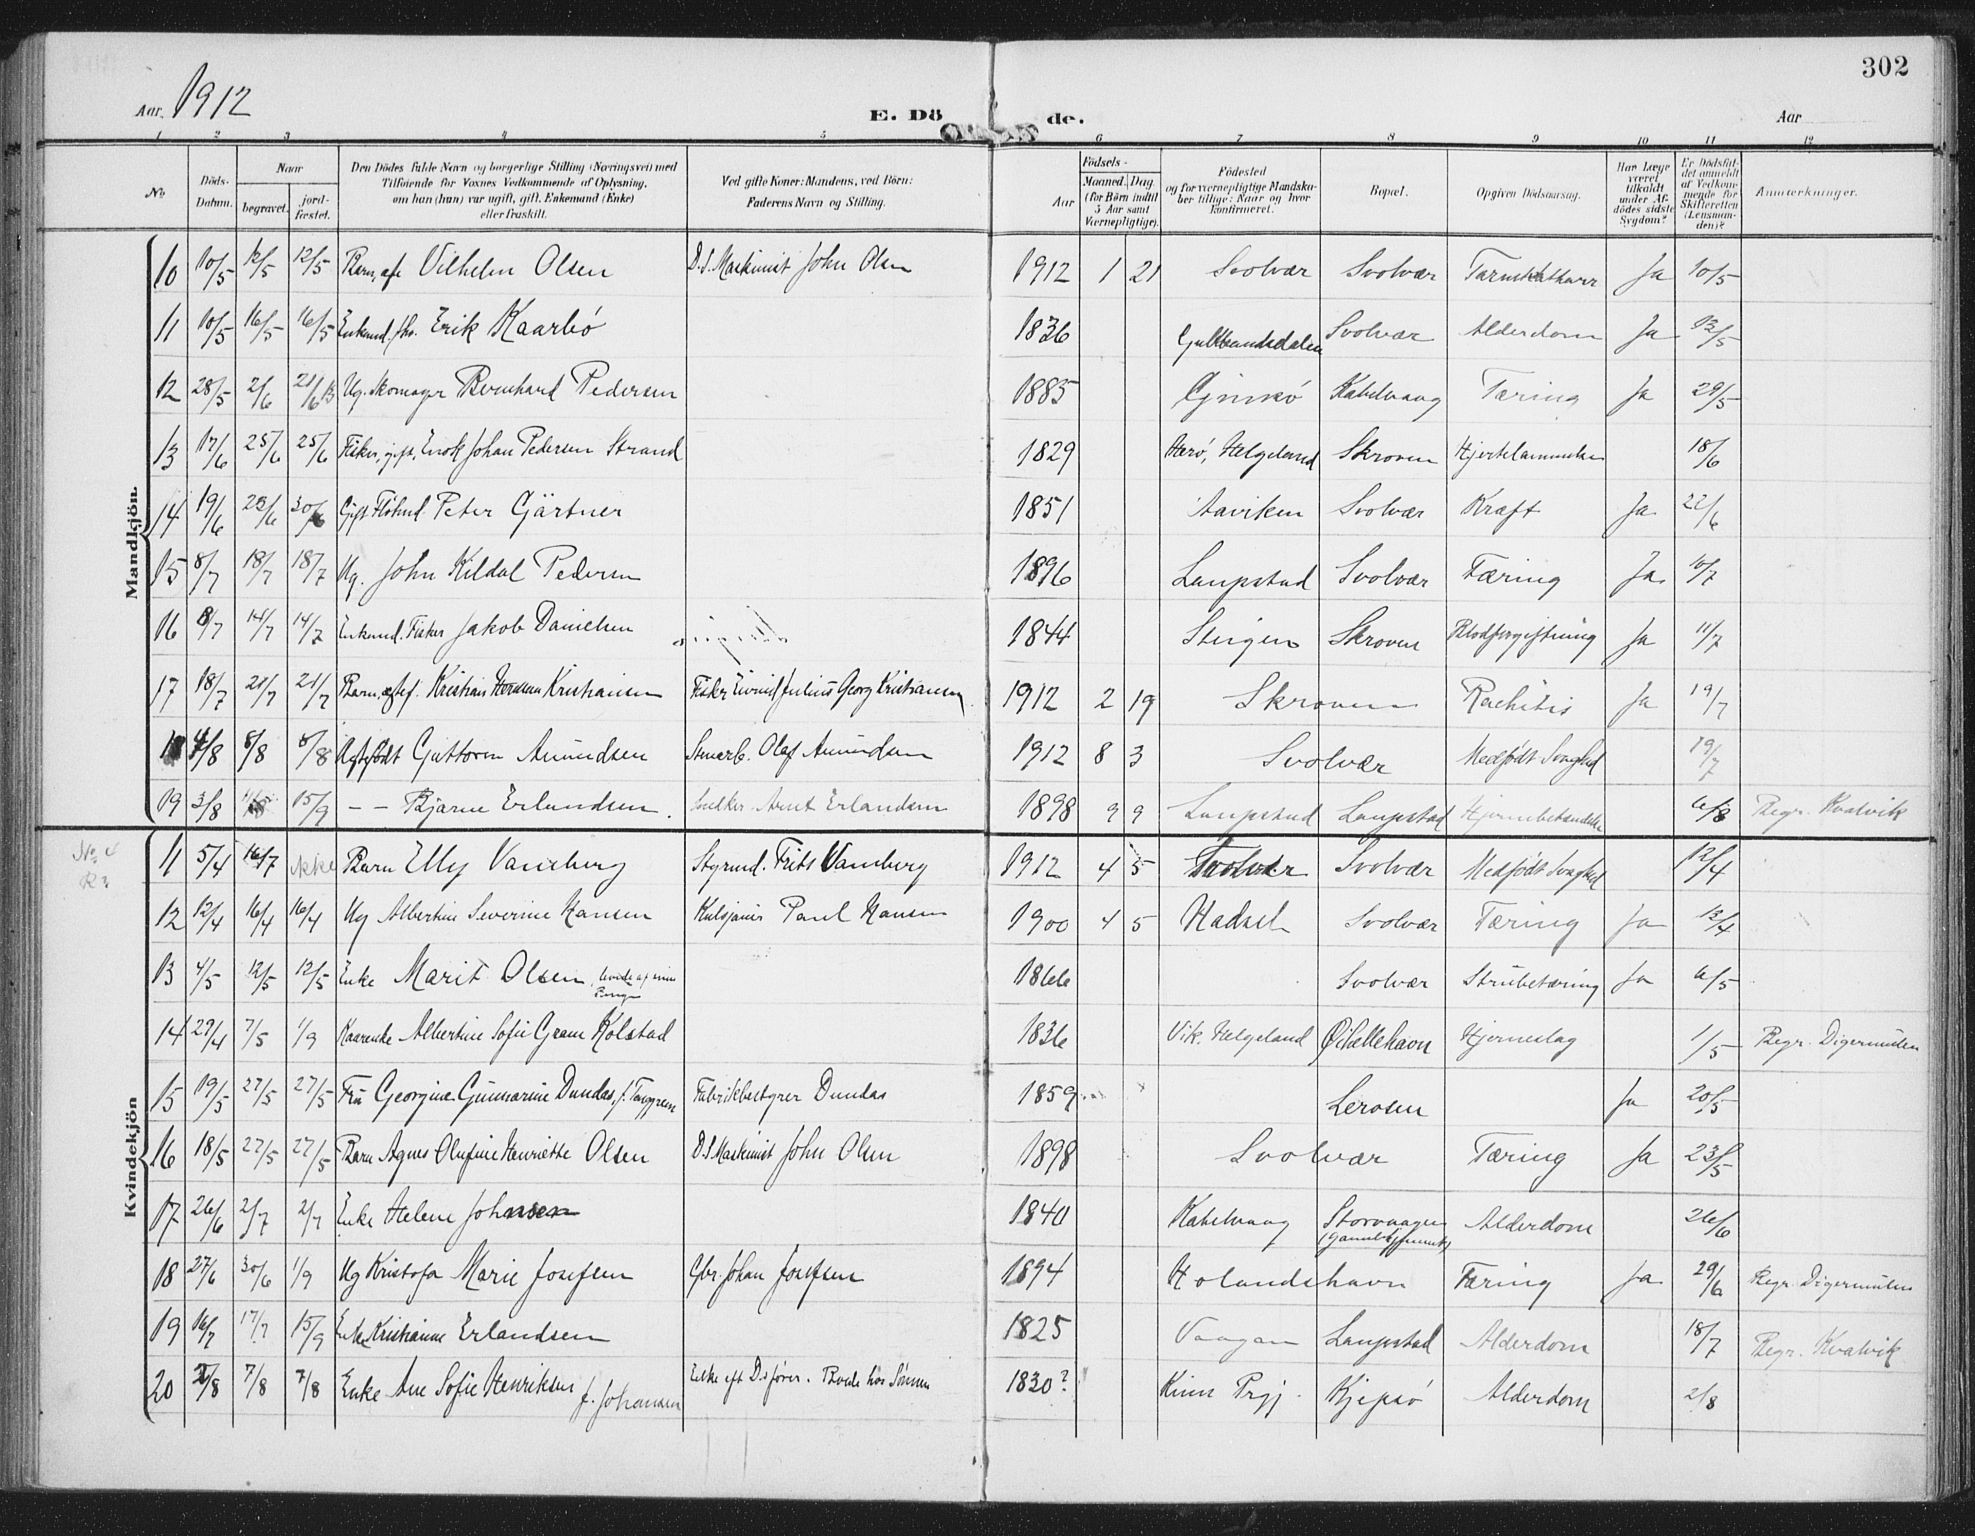 302
Aar. 1912 E. Dö de. Aar
1 2 3 4 5 6 7 8 9 10 11 12
No. Döds-Datum. Naar begravet. jord-fæstet. Den Dödes fulde Navn og borgerlige Stilling (Næringsvei) med Tilføiende for Voxnes Vedkommende af Oplysning, om han (hun) var ugift, gift, Enkemand (Enke) eller fraskilt. Ved gifte Koner: Mandens, ved Börn: Faderens Navn og Stilling. Födsels- Aar Maaned. Dag (for Börn indtil 5 Aar samt Værnepligtige). Födested og for værnepligtige Mandskaber tillige: Naar og hvor konfirmeret. Bopæl. Opgiven Dödsaarsag. Har Læge været tilkaldt under Afdödes sidste Sygdom? Er Dödsfaldet anmeldt af Vedkommende for Skifteretten (Lensmanden)? Anmærkninger.
Mandkjön.
10 10/5 12/5 12/5 Barn, Vilhelm Olsen D.S. Maskinist John Olsen 1912 1 21 Svolvær Svolvær Tarmkatharr Ja 10/5
11 10/5 16/5 16/5 Enkemd. Erik Kaarbø 1836 Gulbrandsdalen Svolvær Alderdom Ja 13/5
12 28/5 2/6 21/6 13 Ug. Skomager Bernhard Pedersen 1885 Gimsø Kabelvaag Tæring Ja 29/5
13 17/6 25/6 25/6 Fisker, gift, Enok Johan Pedersen Strand 1829 Herø, Helgeland Skroven Hjertelammelse 18/6
14 19/6 23/6 30/6 Gift Peter Gärtner 1851 Aaviken Svolvær Kræft Ja 22/6
15 8/7 18/7 18/7 Ug. John Kildal Pedersen 1896 Laupstad Svolvær Tæring Ja 10/7
16 8/7 14/7 14/7 Enkemd. Fisker Jakob Danielsen 1844 Steigen Skroven Blodforgiftning Ja 11/7
17 18/7 21/7 21/7 Barn, ægtef. Kristian Herman Kristiansen Fisker Eivind Julius Georg Kristiansen 1912 2 19 Skroven Rachitis Ja 19/7
4/8 8/8 8/8 Ægtefødt Guttorm Amundsen Stenarb. Olaf Amundsen 1912 8 3 Svolvær Medfødt Svaghed 19/7
19 3/8 15/9 – – Bjarne Erlandsen. Snekker Arnt Erlandsen 1898 9 9 Laupstad Laupstad Hjernebetændelse 6/8 Begr. Kvalvik
Kvindekjön
No. 4
11 5/4 16/7 ikke Barn Elly Vamberg Styrmd. Frits Vamberg 1912 4 5 Svolvær Svolvær Medfødt Svaghed 12/4
12 12/4 16/4 16/4 Ug Albertine Severine Hansen Paul Hansen 1900 4 5 Hadsel Svolvær Tæring Ja 13/4
13 4/5 12/5 12/5 Enke Marit Olsen, 1866 Svolvær Strubetæring Ja 6/5
14 29/4 7/5 1/9 Kaarenke Albertine Sofie Gram Kolstad 1836 Vik. Helgeland Øihellehavn Hjerneslag 1/5 Begr. Digermulen
15 19/5 27/5 27/5 Fru Georgine Gunnarine Dundas, f. Fabrikbestyrer Dundas 1859 Lerosen Ja 20/5
16 18/5 27/5 27/5 Barn Agnes Olufine Henriette Olsen D.S Maskinist John Olsen 1898 Svolvær Tæring Ja 23/5
17 26/6 2/7 2/7 Enke Helene Johnsen 1840 Kabelvaag Storvaagen Alderdom 26/6
18 27/6 30/6 1/9 Ug Kristofa Marie Josefsen Gbr. Johan Josefsen 1894 Holandshavn Tæring Ja 29/6 Begr. Digermulen
19 16/7 17/7 15/9 Enke Kristianne Erlandsen 1825 Vaagan Laupstad Alderdom 18/7 Begr. Kvalvik
20 2/8 7/8 7/8 Enke Ane Sofie Henriksen f. Johansen Enke eft D.s fører. Boede hos Sønnen 1830? Kinn Prgj. Kjepsø Alderdom 2/8